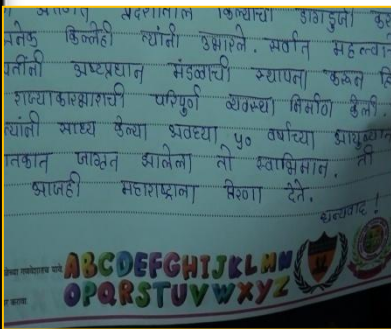 किल्ल्यांची डागडुजी
किल्लेही त्यांनी उभारले. सर्वात महत्वा
अष्टप्रधान मंडळाची स्थापना करून
राज्याकारभाराची परिपूर्ण व्यवस्था निर्माण केली.
त्यांनी साध्य केल्या अवघ्या ५० वर्षाच्या आयुष्या
जागृत झालेला तो स्वाभिमान. ती
आजही महाराष्ट्राला प्रेरणा देते.
धन्यवाद!
ABCDEFGHIJKLMN
OPQRSTUVWXYZ